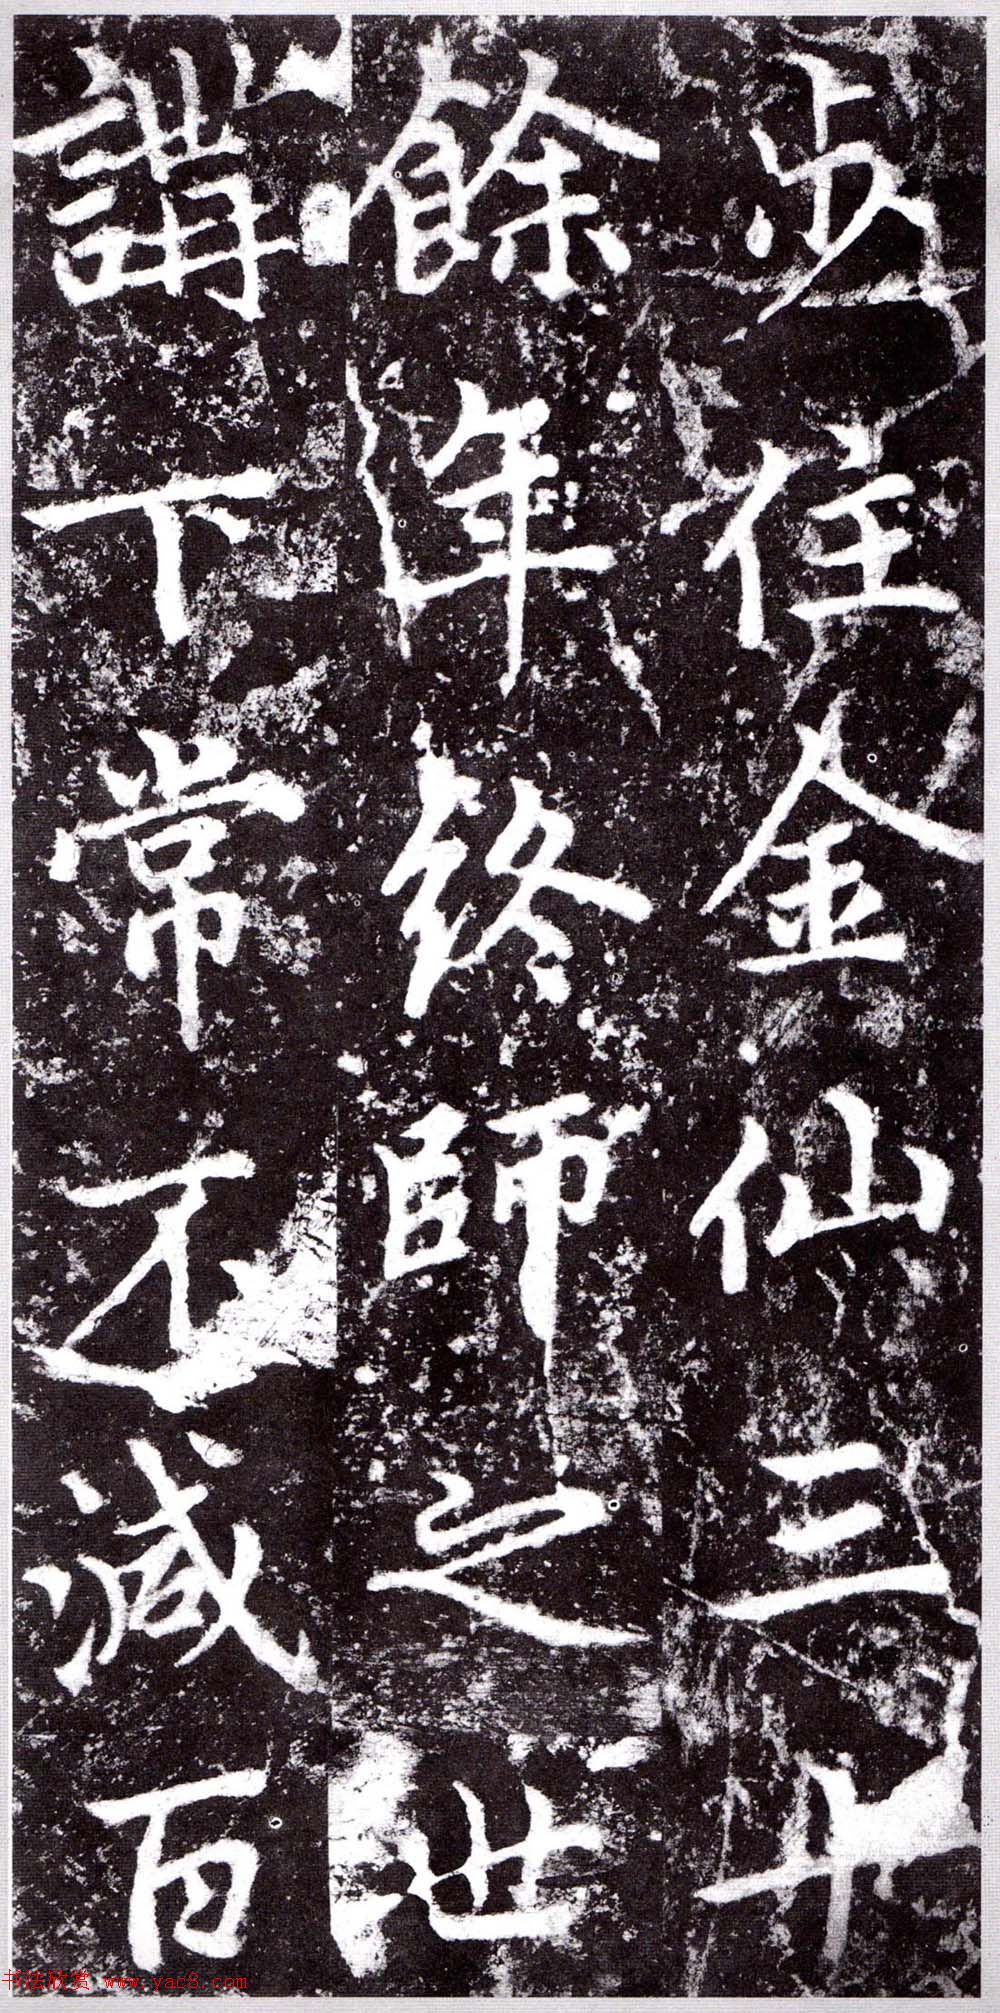 步住金仙三十
餘年終師之世
講下常不減百
书法欣赏 www.yac8.com